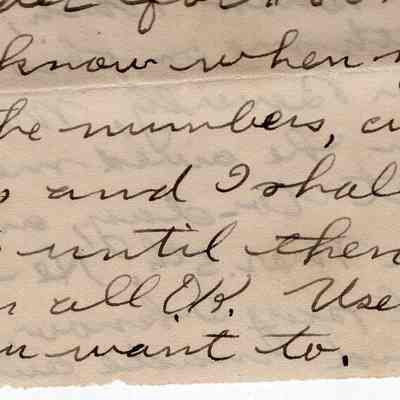 for
know when
he numbers,
and I shal
until then
all O.K. Use
u want to.